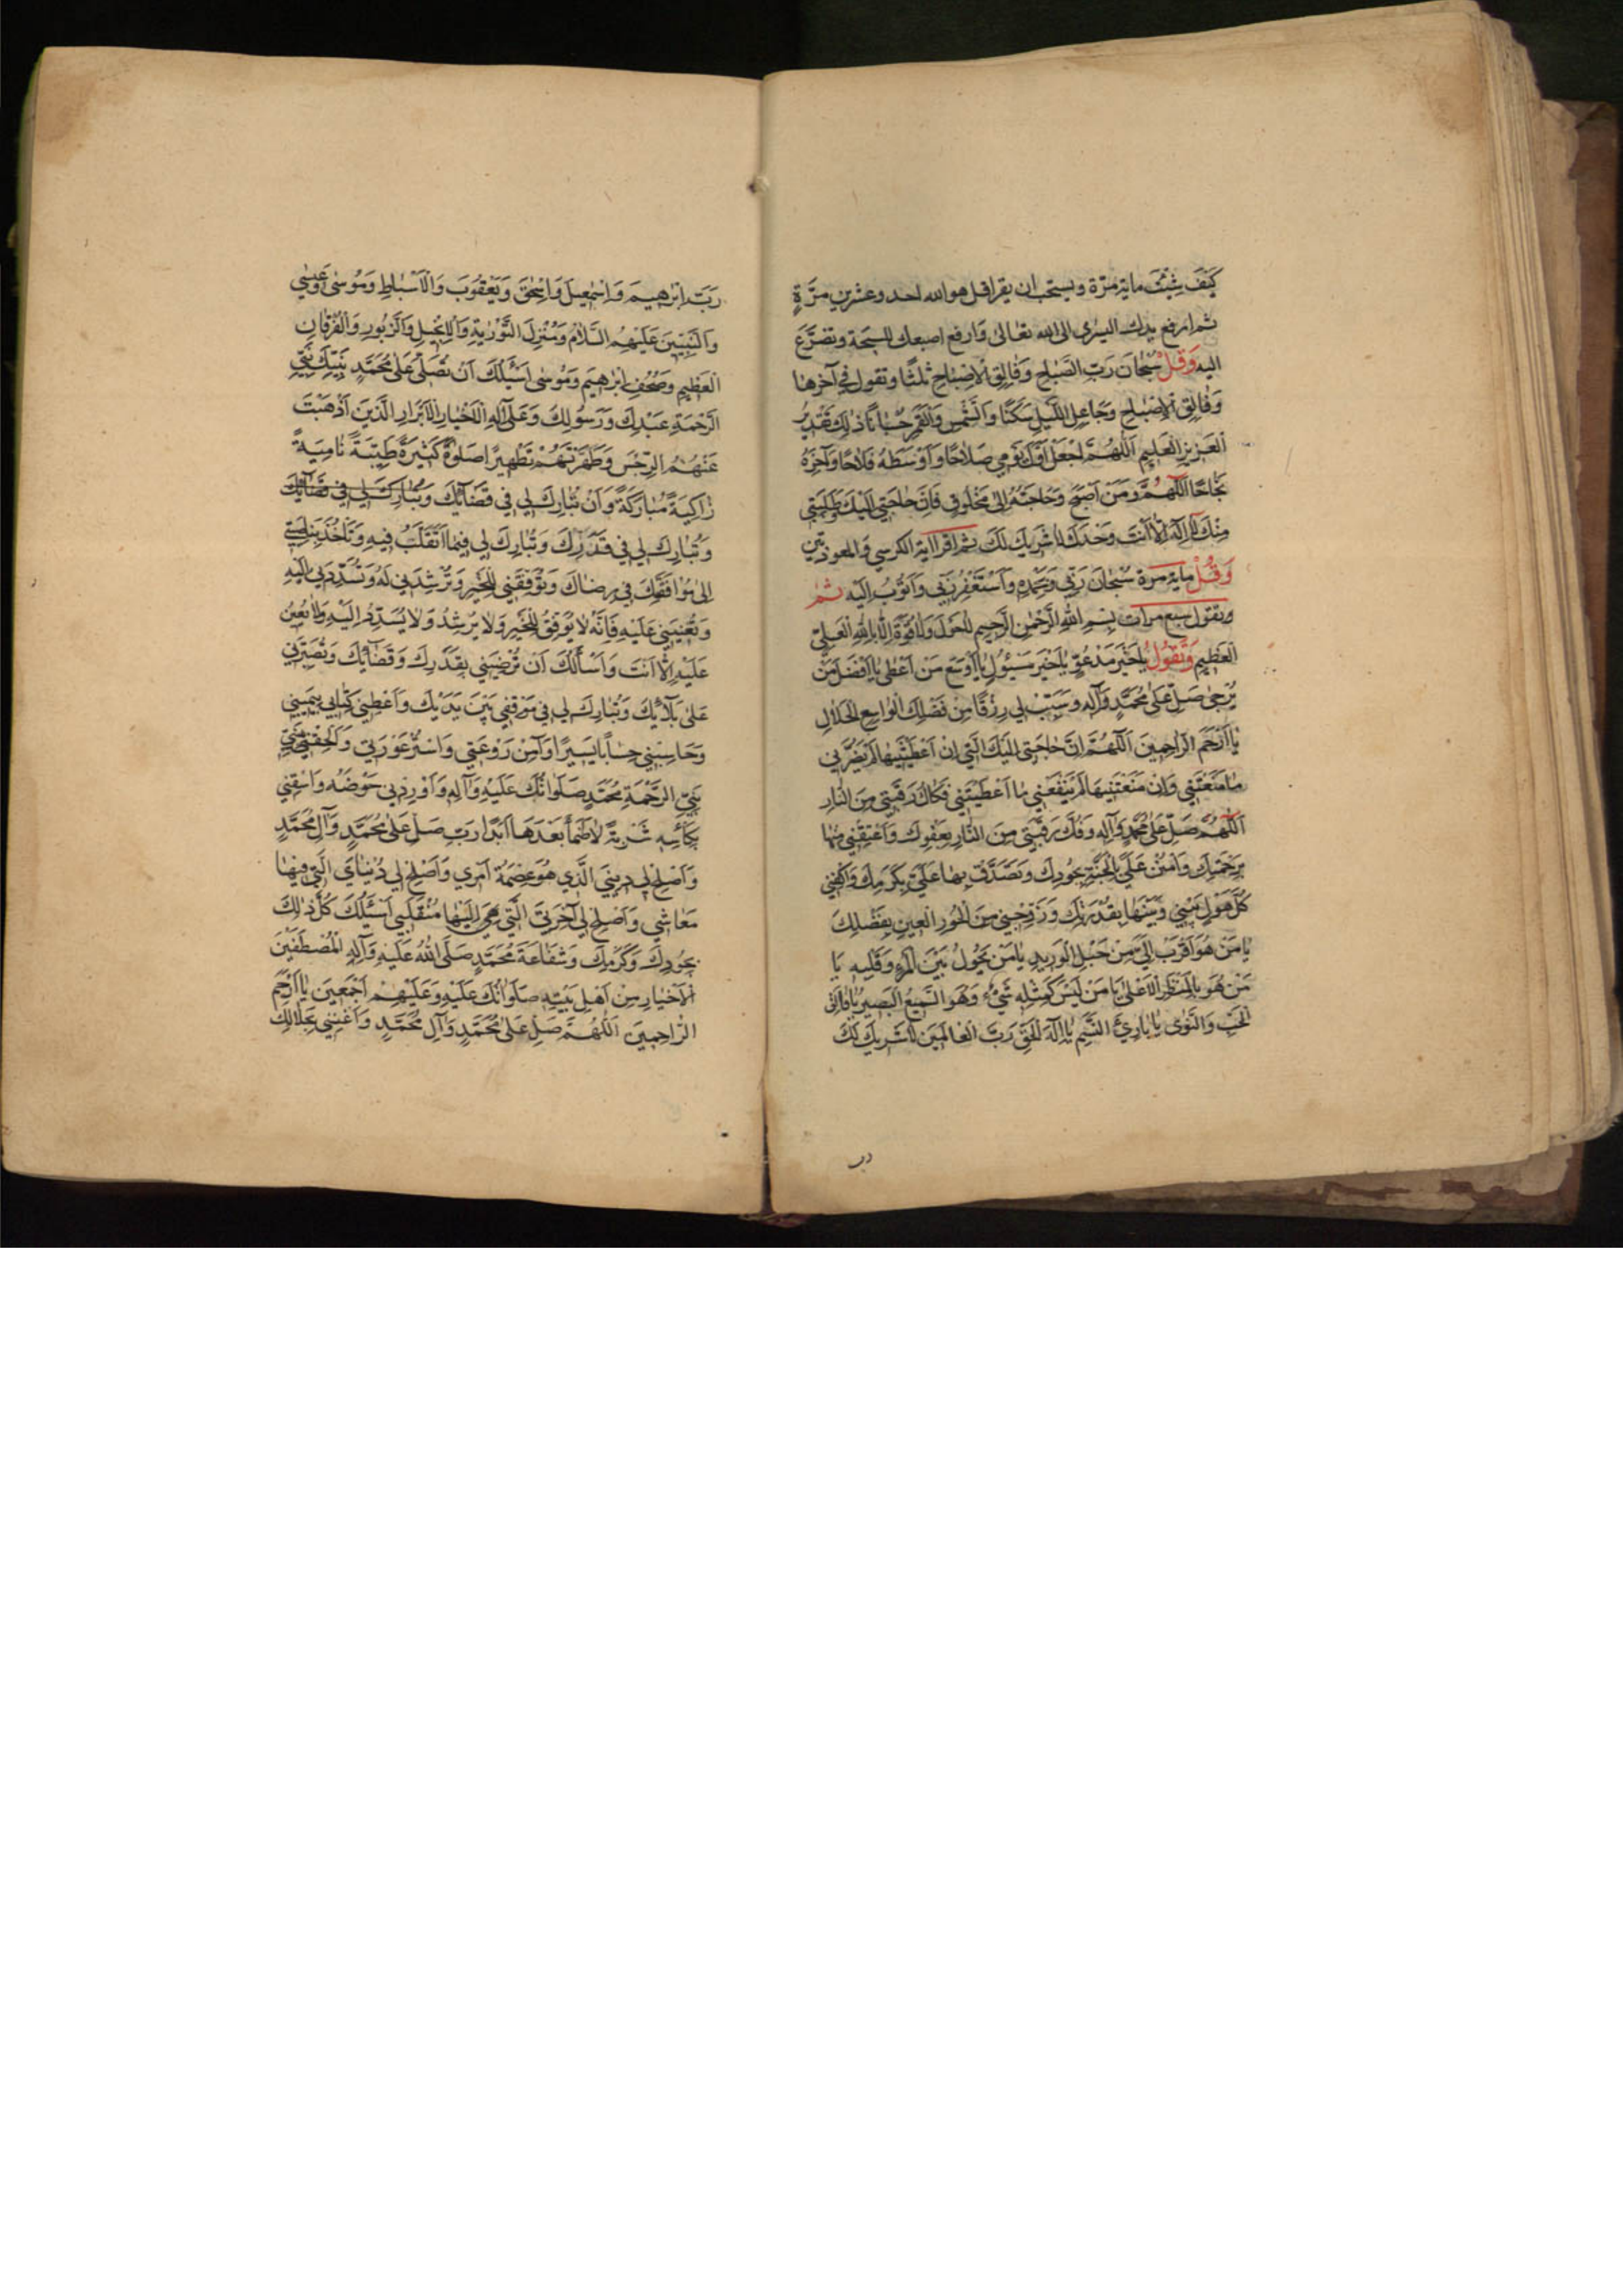 كَيْفَ شِئْتَ مایة مرّة ویستحب ان یقرا قل هو الله احد وعشرین مرّةٍ
ثم ارفع یدك الیسری الی الله تعالی وَارفع اصبعك المسبّحة وتضرّع
الیه وَقُلْ سُبْحانَ رَبِّ الصَّباحِ وَفالِقِ الْاِصْباحِ ثلثًا وتقول في آخرها
وَفالِقِ الْاِصْباحِ وَجاعِلِ اللَّيْلِ سَكَنًا وَالشَّمْسِ وَالْقَمَرِ حُسْبانًا ذٰلِكَ تَقْدِيرُ
الْعَزِيزِ الْعَلِيمِ اَللّٰهُمَّ اجْعَلْ اَوَّلَ يَوْمِي صَلاحًا وَاَوْسَطَهُ فَلاحًا وَآخِرَهُ
نَجاحًا اَللّٰهُمَّ وَمَنْ اَصْبَحَ وَحاجَتُهُ اِلىٰ مَخْلُوقٍ فَاِنَّ حاجَتِي اِلَيْكَ وَطَلِبَتِي
مِنْكَ لا اِلٰهَ اِلّا اَنْتَ وَحْدَكَ لا شَرِيكَ لَكَ ثم اقرا ایة الکرسي والمعوذتین
وَقُلْ مایة مرة سُبْحانَ رَبِّي وَبِحَمْدِهِ وَاَسْتَغْفِرُ رَبِّي وَاَتُوبُ اِلَيْهِ ثم
وتقول سبع مرات بِسْمِ اللّٰهِ الرَّحْمٰنِ الرَّحِيمِ لا حَوْلَ وَلا قُوَّةَ اِلّا بِاللّٰهِ الْعَلِيِّ
الْعَظِيمِ وَتَقُولُ يا خَيْرَ مَدْعُوٍّ يا خَيْرَ مَسْئُولٍ يا اَوْسَعَ مَنْ اَعْطىٰ يا اَفْضَلَ مَنْ
يُرْجىٰ صَلِّ عَلىٰ مُحَمَّدٍ وَآلِهِ وَسَبِّبْ لِي رِزْقًا مِنْ فَضْلِكَ الْواسِعِ الْحَلالِ
يا اَرْحَمَ الرّاحِمِينَ اَللّٰهُمَّ اِنَّ حاجَتِي اِلَيْكَ الَّتِي اِنْ اَعْطَيْتَنِيها لَمْ يَضُرَّنِي
ما مَنَعْتَنِي وَاِنْ مَنَعْتَنِيها لَمْ يَنْفَعْنِي ما اَعْطَيْتَنِي فَكاكُ رَقَبَتِي مِنَ النّارِ
اَللّٰهُمَّ صَلِّ عَلىٰ مُحَمَّدٍ وَآلِهِ وَفُكَّ رَقَبَتِي مِنَ النّارِ بِعَفْوِكَ وَاَعْتِقْنِي مِنْها
بِرَحْمَتِكَ وَامْنُنْ عَلَيَّ بِالْجَنَّةِ بِجُودِكَ وَتَصَدَّقْ بِها عَلَيَّ بِكَرَمِكَ وَاكْفِنِي
كُلَّ هَوْلٍ بَيْنِي وَبَيْنَها بِقُدْرَتِكَ وَزَوِّجْنِي مِنَ الْحُورِ الْعِينِ بِفَضْلِكَ
يا مَنْ هُوَ اَقْرَبُ اِلَيَّ مِنْ حَبْلِ الْوَرِيدِ يا مَنْ يَحُولُ بَيْنَ الْمَرْءِ وَقَلْبِهِ يا
مَنْ هُوَ بِالْمَنْظَرِ الْاَعْلىٰ يا مَنْ لَيْسَ كَمِثْلِهِ شَيْءٌ وَهُوَ السَّمِيعُ الْبَصِيرُ يا فالِقَ
الْحَبِّ وَالنَّوىٰ يا بارِئَ النَّسَمِ يا اِلٰهَ الْحَقِّ رَبَّ الْعالَمِينَ لا شَرِيكَ لَكَ
رب
رَبَّ اِبْرٰهِيمَ وَاِسْمٰعِيلَ وَاِسْحٰقَ وَيَعْقُوبَ وَالْاَسْباطِ وَمُوسىٰ وَعِيسىٰ
وَالنَّبِيِّينَ عَلَيْهِمُ السَّلامُ وَمُنْزِلَ التَّوْرٰيةِ وَالْاِنْجِيلِ وَالزَّبُورِ وَالْفُرْقانِ
الْعَظِيمِ وَصُحُفِ اِبْرٰهِيمَ وَمُوسىٰ اَسْئَلُكَ اَنْ تُصَلِّيَ عَلىٰ مُحَمَّدٍ نَبِيِّكَ نَبِيِّ
الرَّحْمَةِ عَبْدِكَ وَرَسُولِكَ وَعَلىٰ آلِهِ الْاَخْيارِ الْاَبْرارِ الَّذِينَ اَذْهَبْتَ
عَنْهُمُ الرِّجْسَ وَطَهَّرْتَهُمْ تَطْهِيرًا صَلوٰةً كَثِيرَةً طَيِّبَةً نامِيَةً
زاكِيَةً مُبارَكَةً وَاَنْ تُبارِكَ لِي فِي قَضائِكَ وَتُبارِكَ لِي فِي قَضائِكَ
وَتُبارِكَ لِي فِي قَدَرِكَ وَتُبارِكَ لِي فِيما اَتَقَلَّبُ فِيهِ وَتَأْخُذَ بِناصِيَتِي
اِلىٰ مُوافَقَتِكَ فِي رِضاكَ وَتُوَفِّقَنِي لِلْخَيْرِ وَتُرْشِدَنِي لَهُ وَتُسَدِّدَنِي اِلَيْهِ
وَتُعِينَنِي عَلَيْهِ فَاِنَّهُ لا يُوَفِّقُ لِلْخَيْرِ وَلا يُرْشِدُ وَلا يُسَدِّدُ اِلَيْهِ وَلا يُعِينُ
عَلَيْهِ اِلّا اَنْتَ وَاَسْأَلُكَ اَنْ تُرْضِيَنِي بِقَدَرِكَ وَقَضائِكَ وَتُصَبِّرَنِي
عَلىٰ بَلائِكَ وَتُبارِكَ لِي فِي مَوْقِفِي بَيْنَ يَدَيْكَ وَاَعْطِنِي كِتابِي بِيَمِينِي
وَحاسِبْنِي حِسابًا يَسِيرًا وَآمِنْ رَوْعَتِي وَاسْتُرْ عَوْرَتِي وَاَلْحِقْنِي بِنَبِيِّي
نَبِيِّ الرَّحْمَةِ مُحَمَّدٍ صَلَواتُكَ عَلَيْهِ وَآلِهِ وَاَوْرِدْنِي حَوْضَهُ وَاسْقِنِي
بِكَأْسِهِ شَرْبَةً لا اَظْمَأُ بَعْدَها اَبَدًا رَبِّ صَلِّ عَلىٰ مُحَمَّدٍ وَآلِ مُحَمَّدٍ
وَاَصْلِحْ لِي دِينِيَ الَّذِي هُوَ عِصْمَةُ اَمْرِي وَاَصْلِحْ لِي دُنْيايَ الَّتِي فِيها
مَعاشِي وَاَصْلِحْ لِي آخِرَتِيَ الَّتِي هِيَ اِلَيْها مُنْقَلَبِي اَسْئَلُكَ كُلَّ ذٰلِكَ
بِجُودِكَ وَكَرَمِكَ وَشَفاعَةِ مُحَمَّدٍ صَلَّى اللّٰهُ عَلَيْهِ وَآلِهِ الْمُصْطَفَيْنَ
الْاَخْيارِ مِنْ اَهْلِ بَيْتِهِ صَلَواتُكَ عَلَيْهِ وَعَلَيْهِمْ اَجْمَعِينَ يا اَرْحَمَ
الرّاحِمِينَ اَللّٰهُمَّ صَلِّ عَلىٰ مُحَمَّدٍ وَآلِ مُحَمَّدٍ وَاَغْنِنِي بِحَلالِكَ